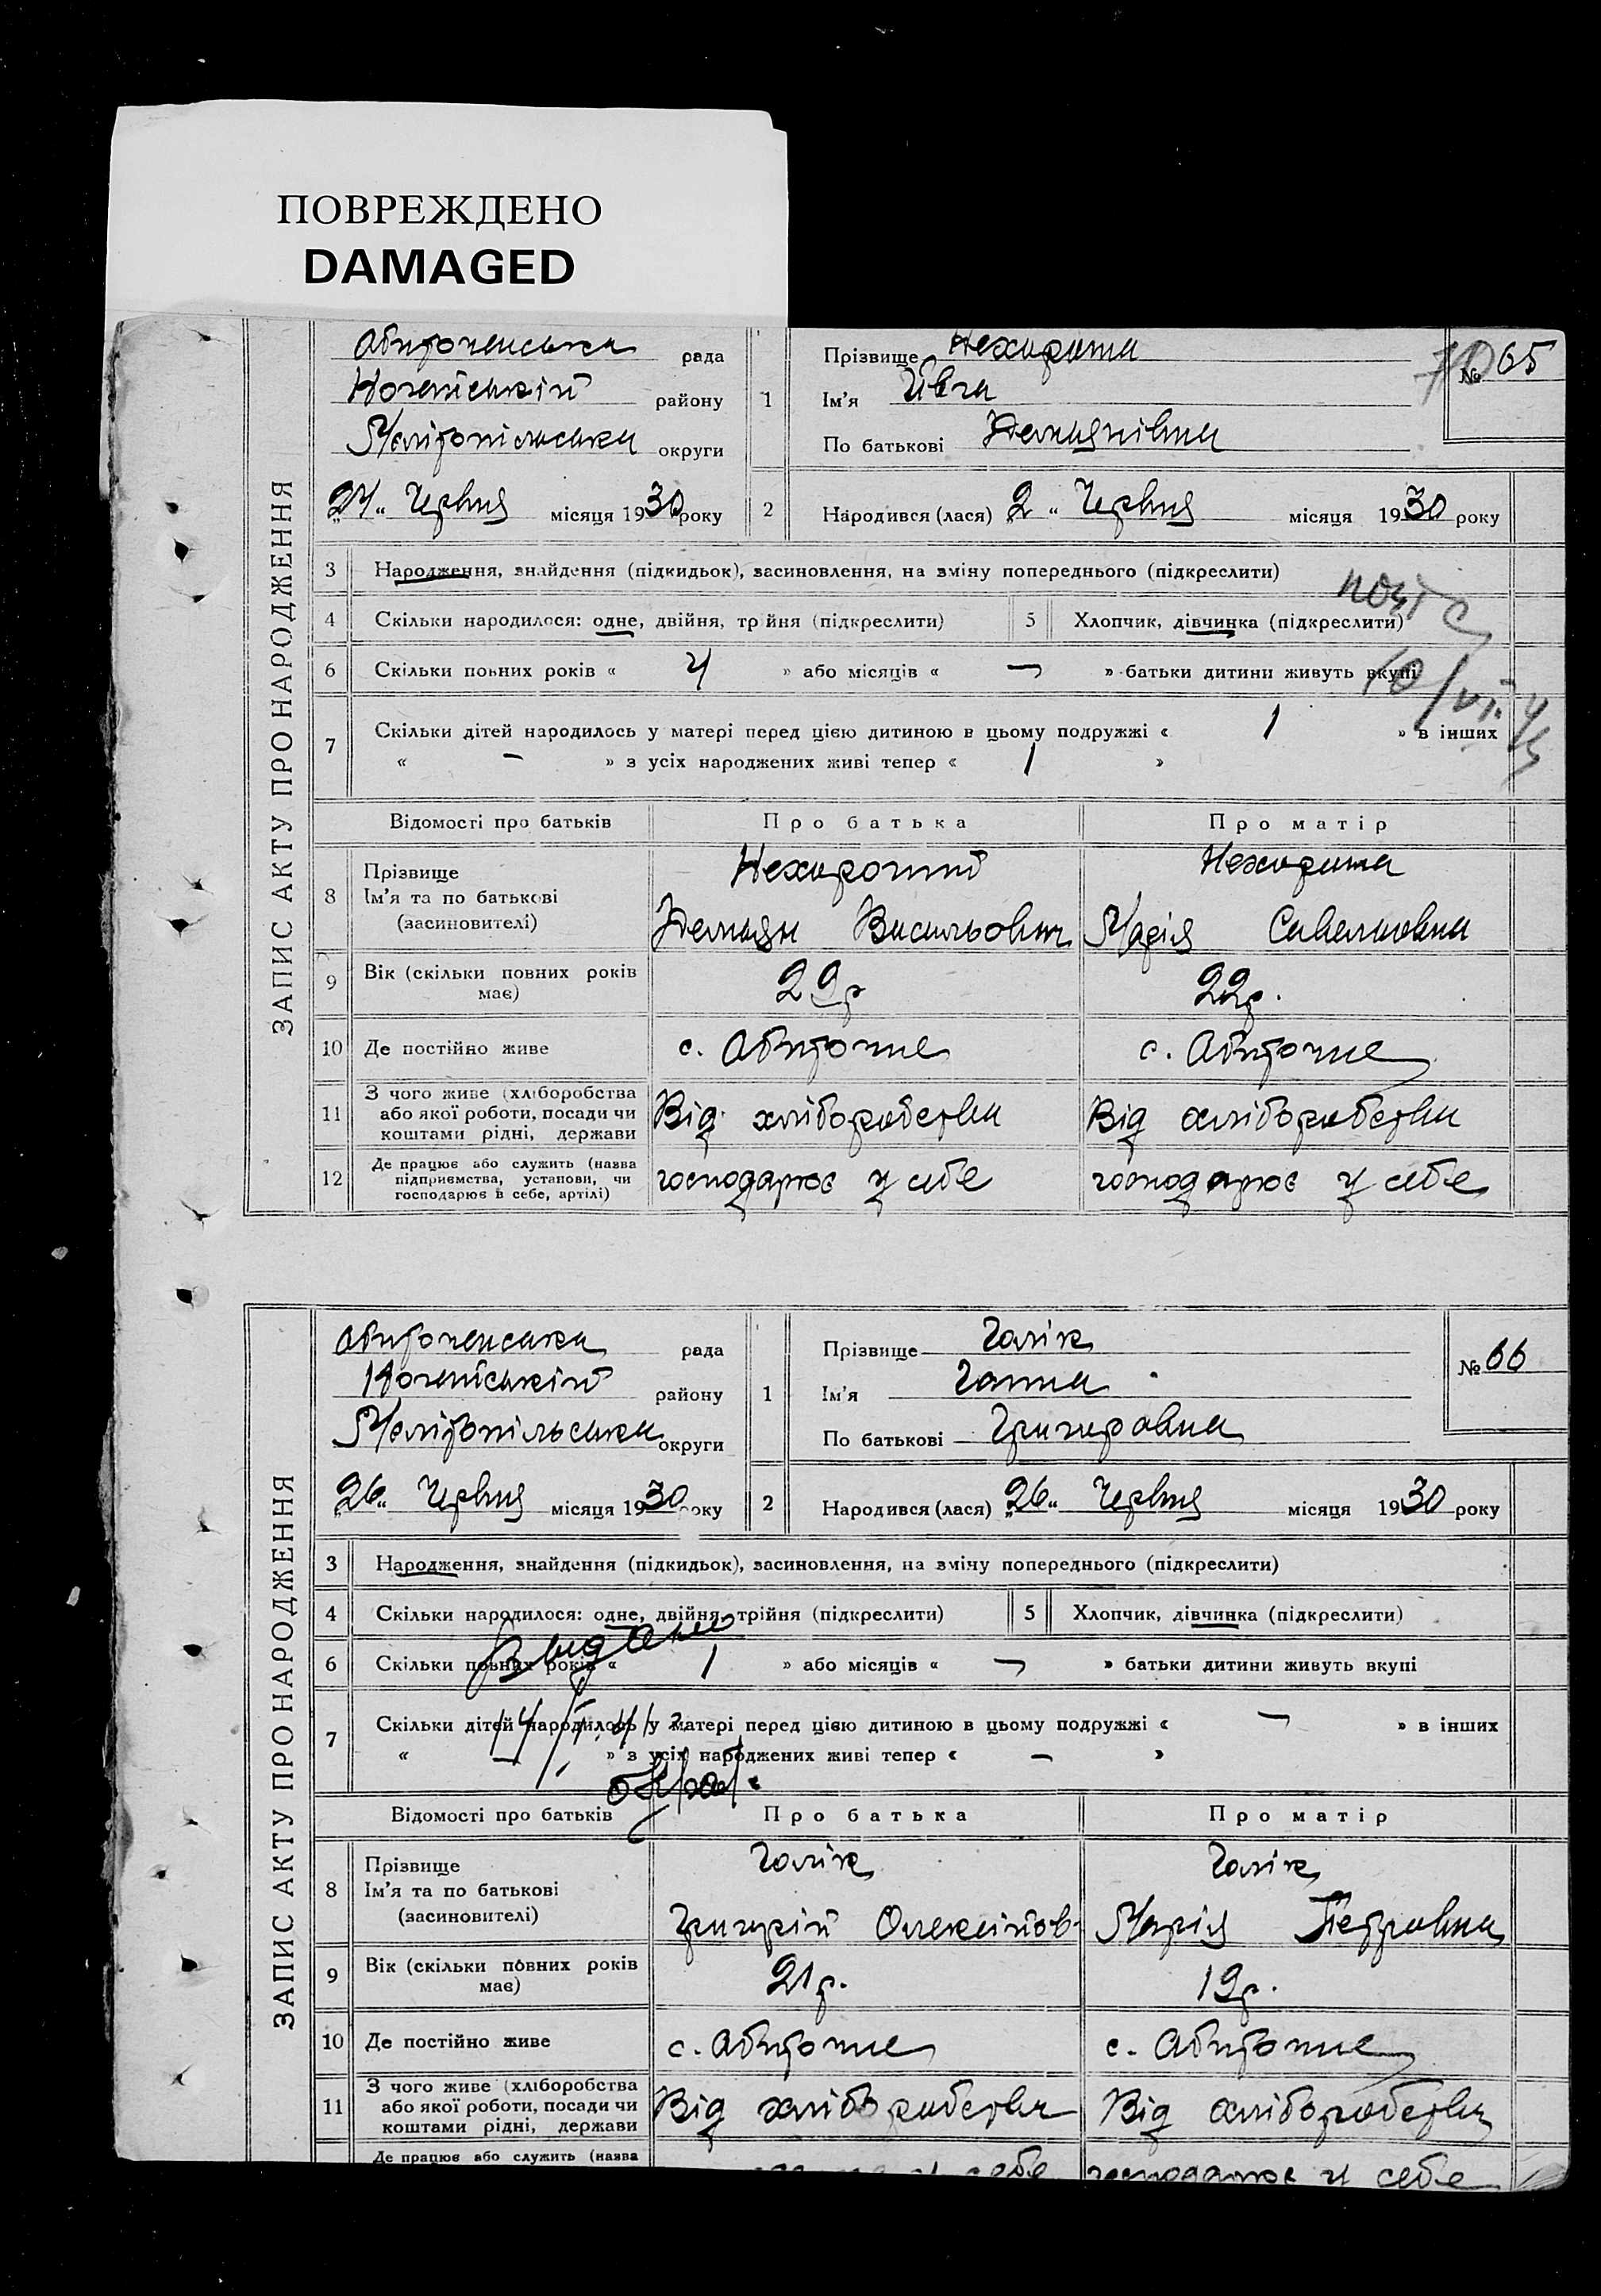 ПОВРЕЖДЕНО
DAMAGED
ЗАПИС АКТУ ПРО НАРОДЖЕННЯ
Обиточенська рада
Ногайський району
Мелітопільська округи
Прізвище Нехороша
Ім'я Ивга
По батькові Демиднівна
№ 65
1
„ Червня місяця 1930 року
2 Народився (лася) „2“ Червня місяця 1930 року
3 Народження, знайдення (підкидьок), засиновлення, на зміну попереднього (підкреслити)
4 Скільки народилося: одне, двійня, трійня (підкреслити)
5 Хлопчик, дівчинка (підкреслити)
6 Скільки повних років « 4 » або місяців « — » батьки дитини живуть вкупі
7 Скільки дітей народилось у матері перед цією дитиною в цьому подружжі « 1 » в інших
« — » з усіх народжених живі тепер « 1 »
Відомості про батьків Про батька Про матір
8 Прізвище
Ім'я та по батькові
(засиновителі)
Нехороший
Васильович
Нехороша
Марія Савелиовна
9 Вік (скільки повних років має) 29р 22р.
10 Де постійно живе с. Обиточне с. Обиточне
11 З чого живе (хліборобства
або якої роботи, посади чи
коштами рідні, держави
Від хліборобства Від хліборобства
12 Де працює або служить (назва
підприємства, установи, чи
господарює в себе, артілі)
господарює у себе господарює у себе
ЗАПИС АКТУ ПРО НАРОДЖЕННЯ
Обиточенська рада
Ногайський району
Мелітопільська округи
Прізвище Галік
Ім'я Ганна
По батькові Григоровна
№ 66
1
26„ Червня місяця 1930 року
2 Народився (лася) „26“ Червня місяця 1930 року
3 Народження, знайдення (підкидьок), засиновлення, на зміну попереднього (підкреслити)
4 Скільки народилося: одне, двійня, трійня (підкреслити)
5 Хлопчик, дівчинка (підкреслити)
6 Скільки повних років « 1 » або місяців « — » батьки дитини живуть вкупі
7 Скільки дітей народилось у матері перед цією дитиною в цьому подружжі « — » в інших
« — » з усіх народжених живі тепер « — »
Відомості про батьків Про батька Про матір
8 Прізвище
Ім'я та по батькові
(засиновителі)
Галік
Григорій Олексійов
Галік
Марія Петровна
9 Вік (скільки повних років має) 21р. 19р.
10 Де постійно живе с. Обиточне с. Обиточне
11 З чого живе (хліборобства
або якої роботи, посади чи
коштами рідні, держави
Від хліборобства Від хліборобства
Де працює або служить (назва
у себе господарює у себе